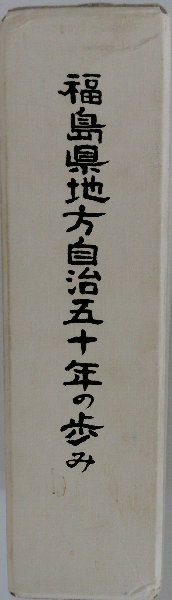 福島県地方自治五十年の歩み